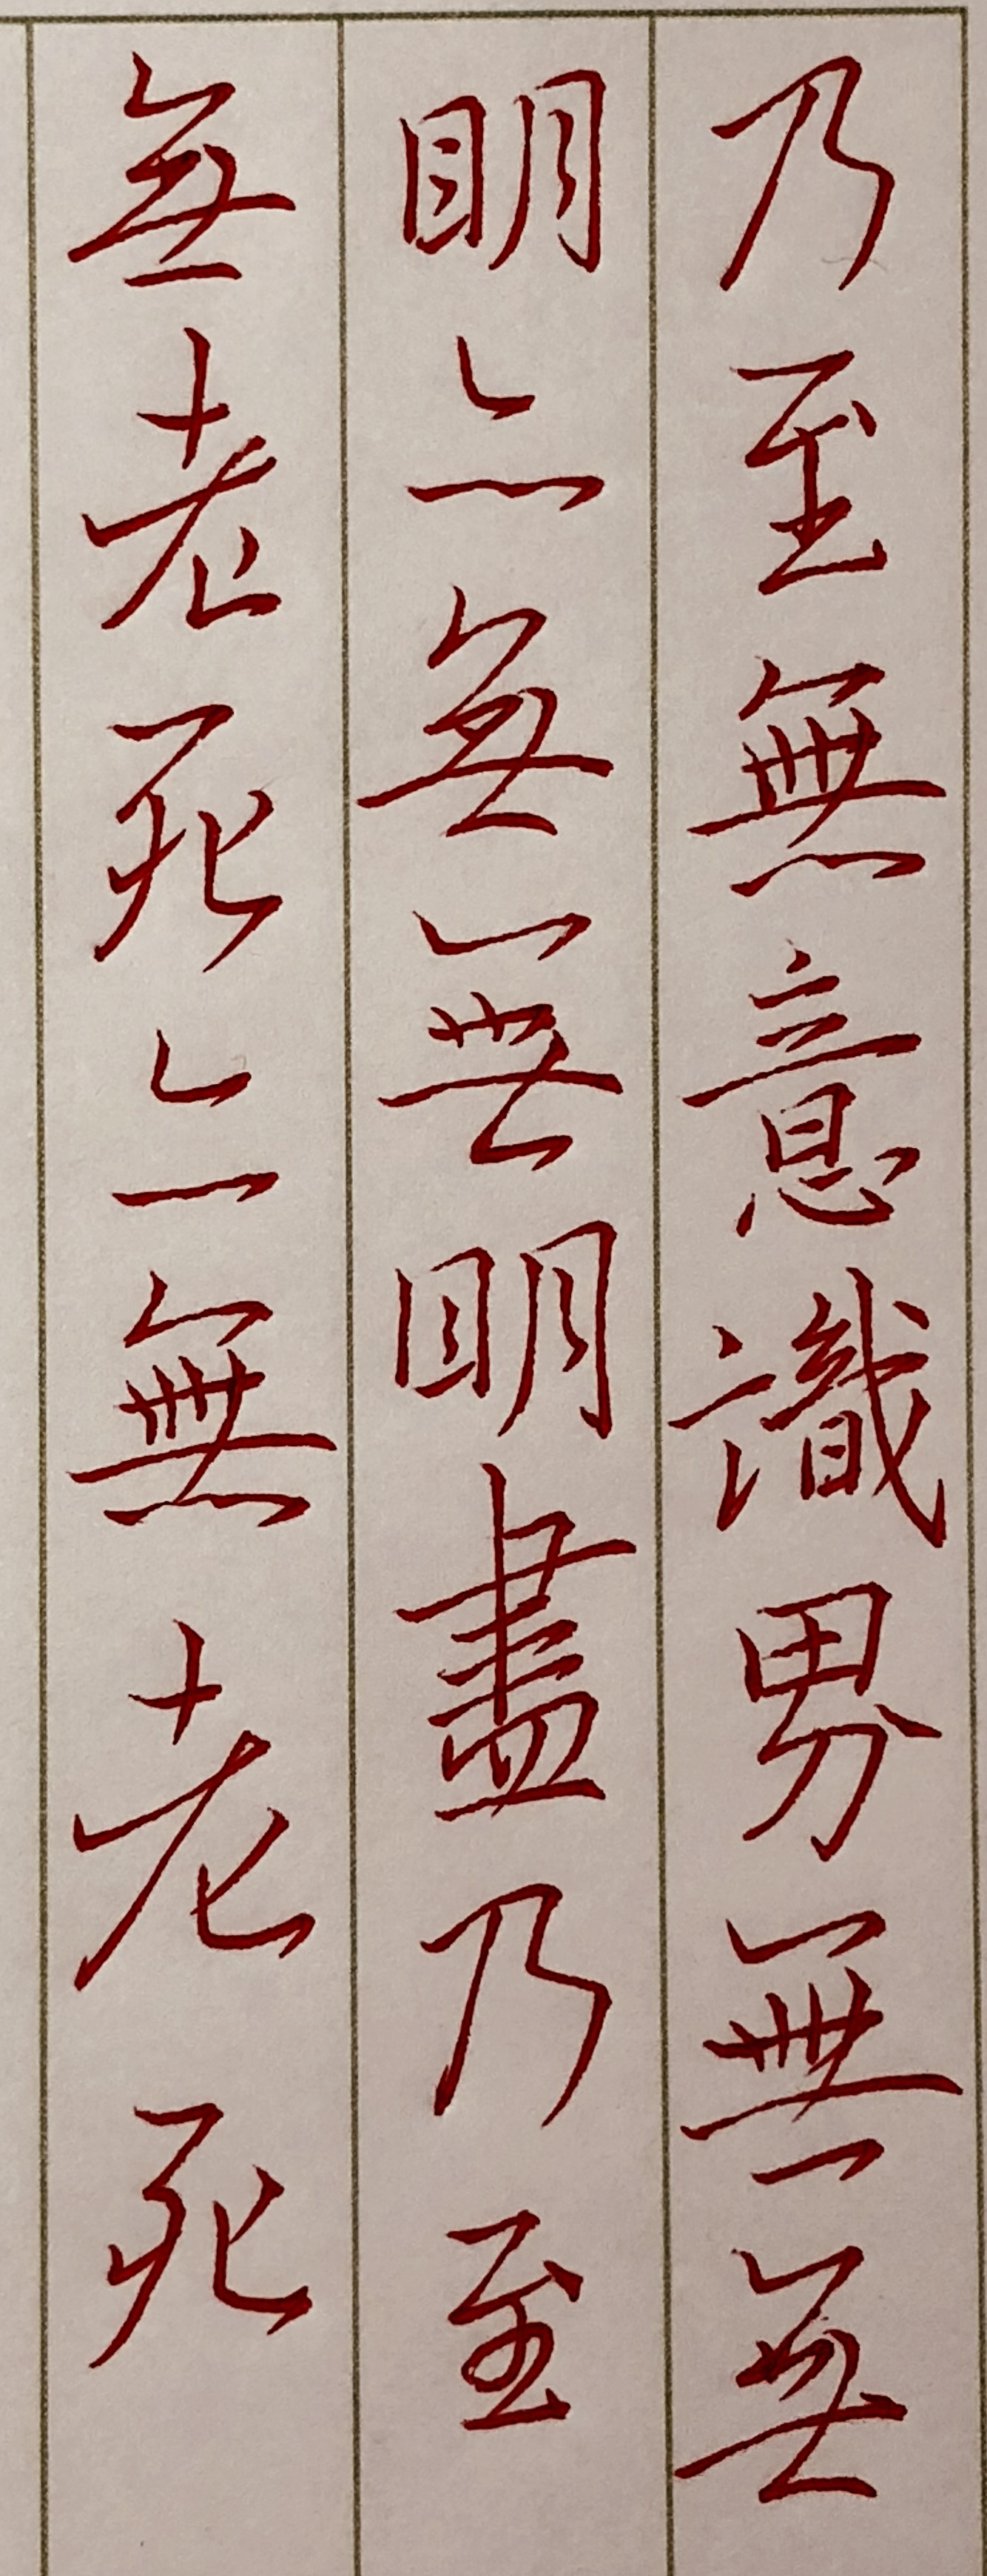 乃至無意識界無無
明亦無無明盡乃至
無老死亦無老死